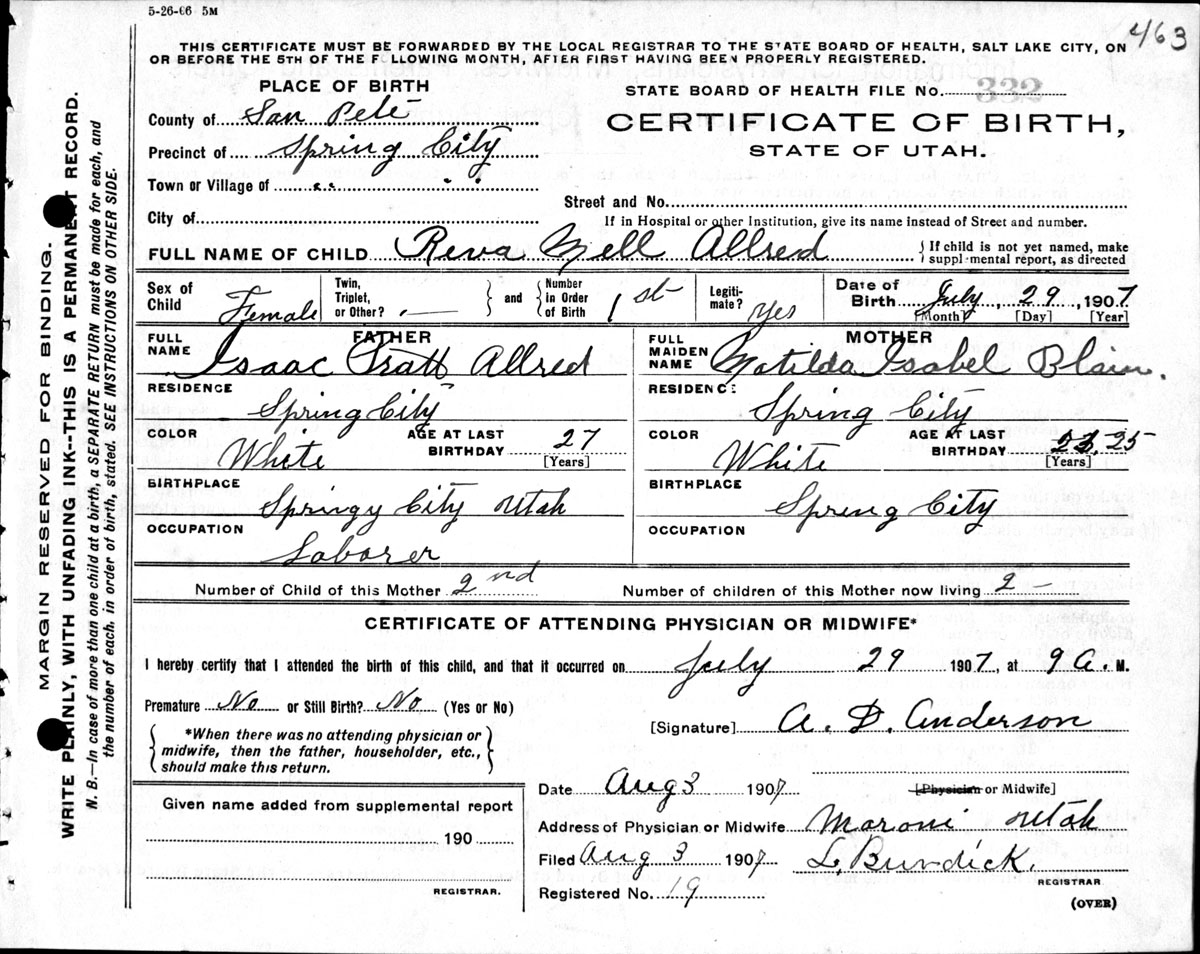 5-26-06 5M
463
THIS CERTIFICATE MUST BE FORWARDED BY THE LOCAL REGISTRAR TO THE STATE BOARD OF HEALTH, SALT LAKE CITY, ON
OR BEFORE THE 5TH OF THE FOLLOWING MONTH, AFTER FIRST HAVING BEEN PROPERLY REGISTERED.
PLACE OF BIRTH
County of San Pete
Precinct of Spring City
Town or Village of " "
City of
STATE BOARD OF HEALTH FILE No. 332
CERTIFICATE OF BIRTH,
STATE OF UTAH.
Street and No.
If in Hospital or other Institution, give its name instead of Street and number.
FULL NAME OF CHILD Reva Nell Allred
{If child is not yet named, make
supplemental report, as directed
Sex of Child Female
Twin, Triplet, or Other? —
and
Number in Order of Birth 1st
Legitimate? Yes
Date of Birth July, 29, 1907
[Month] [Day] [Year]
FATHER
FULL NAME Isaac Pratt Allred
RESIDENCE
Spring City
COLOR White
AGE AT LAST BIRTHDAY 27
[Years]
BIRTHPLACE
Springy City Utah
OCCUPATION
Laborer
MOTHER
FULL MAIDEN NAME Matilda Isabel Blain.
RESIDENCE:
Spring City
COLOR White
AGE AT LAST BIRTHDAY 25
[Years]
BIRTHPLACE
Spring City
Number of Child of this Mother 2nd
Number of children of this Mother now living 2 —
CERTIFICATE OF ATTENDING PHYSICIAN OR MIDWIFE*
I hereby certify that I attended the birth of this child, and that it occurred on July 29 1907, at 9 A. M.
Premature No or Still Birth? No (Yes or No)
{*When there was no attending physician or
midwife, then the father, householder, etc.,
should make this return.}
[Signature] A. D. Anderson
Date Aug 3 1907
[Physician or Midwife]
Address of Physician or Midwife Moroni Utah
Filed Aug 3 1907 L. Burdick.
REGISTRAR
Registered No. 19
(OVER)
Given name added from supplemental report
190
REGISTRAR.
MARGIN RESERVED FOR BINDING.
WRITE PLAINLY, WITH UNFADING INK--THIS IS A PERMANENT RECORD.
N. B.—In case of more than one child at a birth, a SEPARATE RETURN must be made for each, and
the number of each, in order of birth, stated. SEE INSTRUCTIONS ON OTHER SIDE.